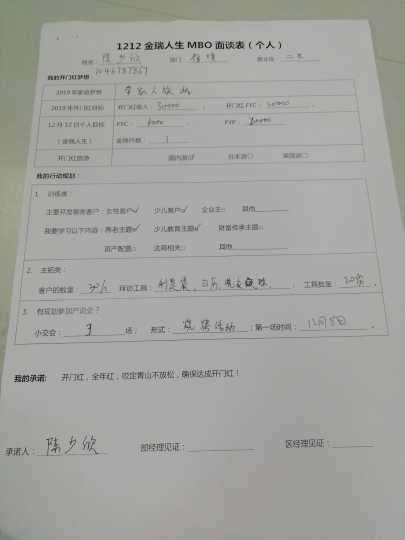 1212 金瑞人生 MBO 面谈表（个人）
姓名：陈少欣 部门： 营业区 二区
1046787867
我的开门红梦想：
2019 年家庭梦想 带家人旅游
2019 年开门红目标 开门红收入：30000； 开门红 FYC：
12 月 12 日个人目标 FYC：6000； FYP：
（金瑞人生） 金瑞件数：1
开门红旅游 国内游☑ 日本游□ 英国游□
我的行动规划：
1. 训练类：
主要开发哪类客户：女性客户☑ 少儿客户☑ 企业主□ 其他
我要学习以下内容：养老主题☑ 少儿教育主题☑ 财富传承主题□
资产配置□ 法商相关□ 其他
2. 主拓类：
客户的数量：30人 拜访工具：利是袋，台历， ；工具数量：20份。
3. 有规划参加产说会？
小交会：3 场； 形式：烧烤活动；第一场时间：12月8日。
我的承诺： 开门红，全年红，咬定青山不放松，确保达成开门红！
承诺人：陈少欣 部经理见证： 区经理见证：